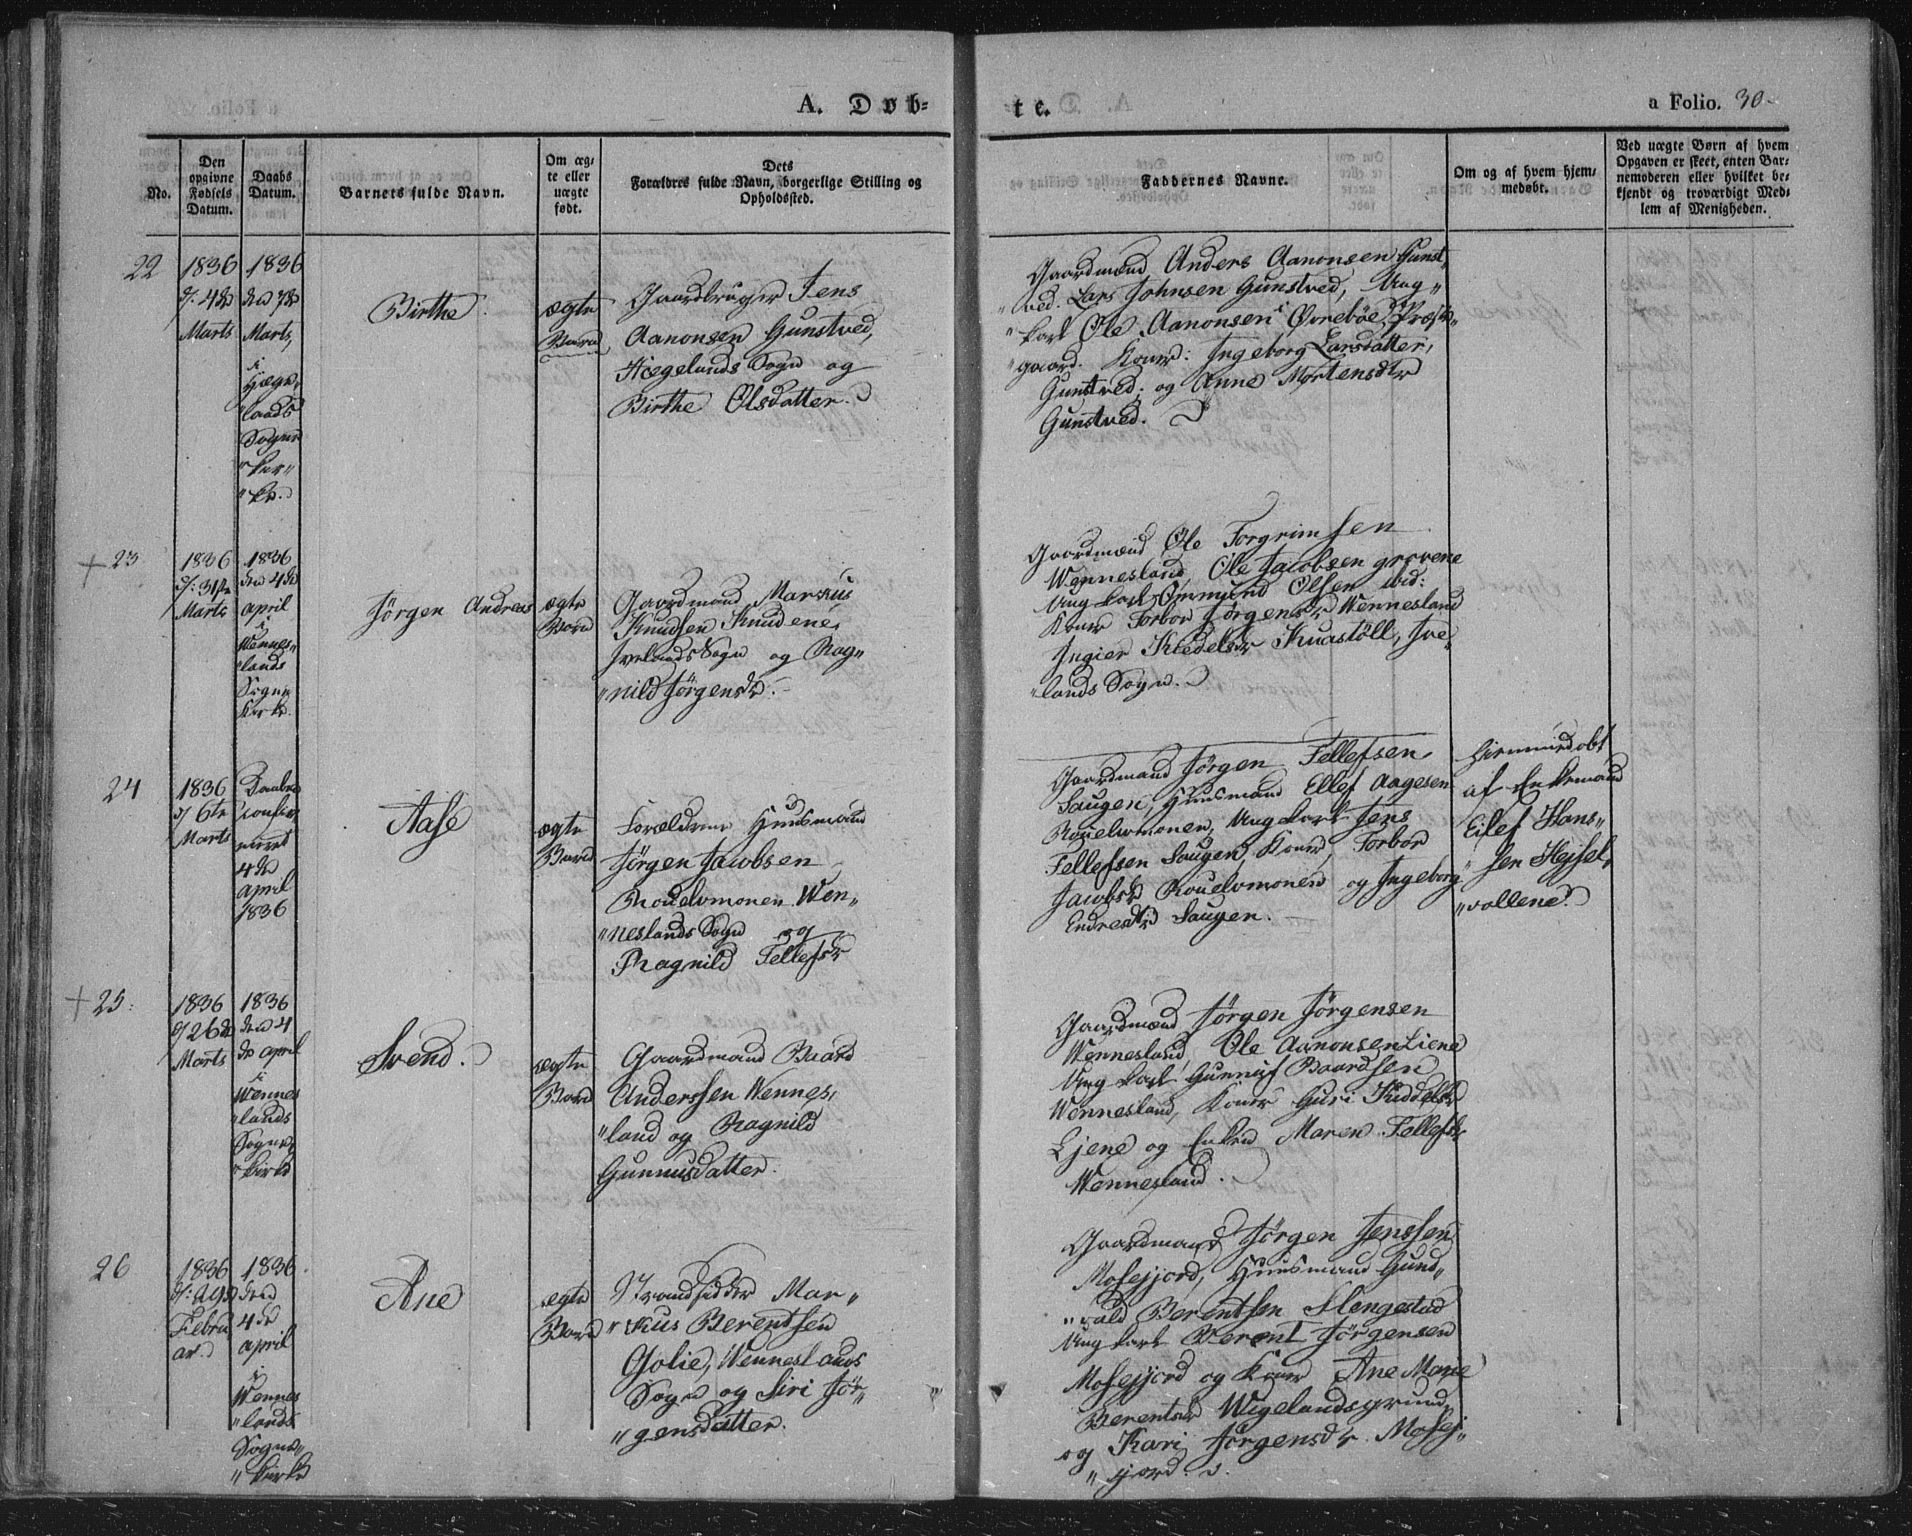 A. Døb-
te.
a Folio. 30
No.
Den
opgivne
Fødsels
Datum.
Daabs
Datum.
Barnets fulde Navn.
Om æg-
te eller
uægte
født.
Dets
Forældres fulde Navn, borgerlige Stilling og
Opholdssted.
Faddernes Navne.
Om og af hvem hjem-
medøbt.
Ved uægte Børn af hvem
Opgaven er skeet, enten Bar-
nemoderen eller hvilket be-
kjendt og troværdigt Med-
lem af Menigheden.
22
1836
d: 4de
Marts
1836
den 7de
Marts,
i
Hæge-
lands
Sogne
"kir"
"ke.
Birthe
ægte
Barn
Gaardbruger Jens
Aanonsen Gunstved,
Hægelands Sogn og
Birthe Olsdatter.
Gaardmænd Anders Aanonsen Gunst-
"ved. Lars Johnsen Gunstved, Ung"
"karl Ole Aanonsen Øvrebøe Præste"
"gaard. Koner: Ingeborg Larsdatter,
Gunstved, og Anne Mortensdtr
Gunstved.
+ 23
1836
d: 31te
Marts
1836
den 4de
april
i
Wennes-
"lands
Sogne
Kirke.
Jørgen Andreas
ægte
Barn
Gaardmand Markus
Knudsen Knudene,
Ivelands Sogn og Rag"
"nild Jørgensdr.
Gaardmænd Ole Torgrimsen
Wennesland, Ole Jacobsen grovene
Ung karl Ommund Olsen ibid:
Koner Torbor Jørgensdr Wennesland
Ingier Kiedelsdr Kuastöll, Ive"
"lands Sogn.
24
1836
d 6te
Marts
Daaben
confir
meret
4de
april
1836
Aase
ægte
Barn
Forældrene Huusmand
Jørgen Jacobsen
Rouelvmonen Wen"
"neslands Sogn og
Ragnild Tellefsdr
Gaardmand Jørgen Tellefsen,
Saugen, Huusmand Ellef Aagesen
Rouelvmonen, Ung karl Jens
Tellefsen Saugen, Koner, Torbor
Jacobsdr Rouelvmonen og Ingeborg
Endresdtr Saugen.
Hiemmedøbt
af Enkemand
Eilef Hans"
"sen Hejsel,
"vollene.
+ 25.
1836
d 26de
Marts
1836
den 4
de april
i
Wennes
"lands
Sogne,
"kirke
Svend.
ægte
Barn
Gaardmand Baard
Anderssen Wennes,
"land og Ragnild
Gunnusdatter.
Gaardmænd Jørgen Jørgensen
Wennesland, Ole Aanonsen Liene
Ung karl Gunnuf Baardsen
Wennesland, Koner Guri Kiddelsdr
Ljene og Enken Maren Tellefsdr
Wennesland.
26
1836
d: 29de
Febru
ar.
1836
den
4de
april
i
Wennes
"lands
Sogne"
"kirke
Ane
ægte
Barn
Strandsidder Mar"
"kus Berentsen
Golie, Wenneslands
Sogn og Siri Jør"
"gensdatter.
Gaardmand Jørgen Jenssen
Mosejjord, Huusmand Gund"
"vald Berentsen Slengestad
Ung karl Berent Jørgensen
Mosejjord og Koner Ane Marie
Berentsdr Wigelandsgrund,
og Kari Jørgensdr. Mosej"
"jord.